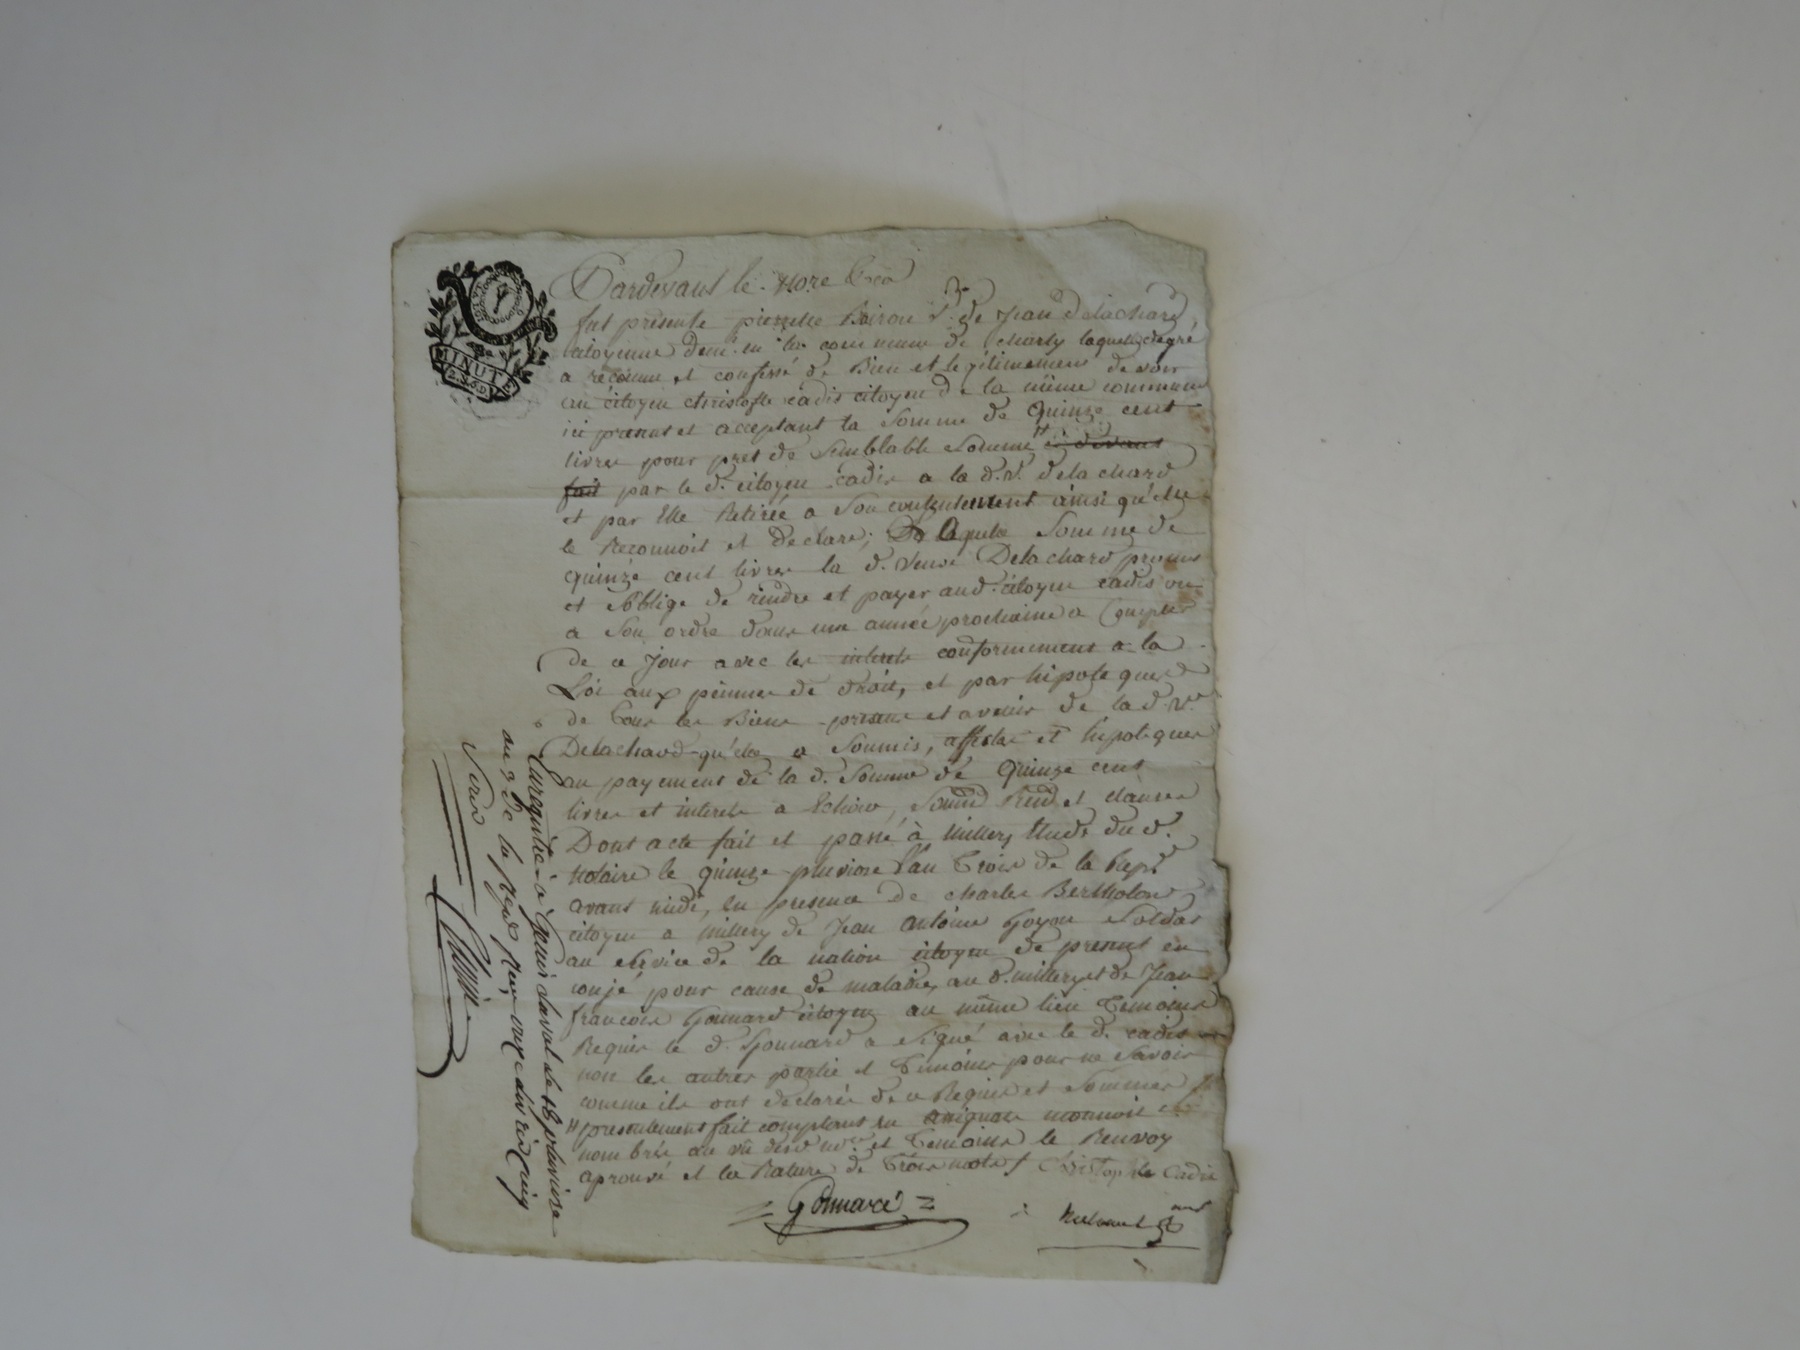 MINUTE
Pardevant le Nore
fut présente pierrette Bairou Ve de Jean Delachard
citoyenne demt. en la commune de charly laquelle de gré
a reconnu et confessé de Bien et légitimement devoir
au citoyen christofle cadis citoyen de la même commune
ici présent et acceptant la Somme de Quinze cent
livres pour pret de Semblable Somme # cy devant
fait par le d. citoyen cadis a la d. Ve. delachard
et par Elle Retirée a Son contentement ainsi qu'elle
le Reconnoit et declare; Laquelle Somme de
quinze cent livres la d. veuve Delachard promet
et oblige de rendre et payer aud. citoyen cadis ou
a Son ordre dans une année prochaine a Compter
de ce Jour avec les interets conformement a la
Loi aux peines de droit, et par hipoteque
de tous les Biens presens et avenir de la d. Ve.
Delachard qu'elle a Soumis, affecté et hipotequés
au payement de la d. Somme de Quinze cent
livres et interets a Echoir, et clauses
Dont acte fait et passé à Millery Etude du d.
Notaire le quinze pluviose l'an trois de la Rep.
avant midi, en presence de charles Bertholon
citoyen a millery de Jean antoine Goyon Soldat
au Service de la nation citoyen de present en
conjé pour cause de maladie au d. millery et de Jean
francois Gonnard citoyen au même lieu Temoins
Requis le d. Gonnard a Signé avec le d. cadis
non les autres partie et Temoins pour ne Savoir
comme ils ont declarée de ce Requis et Sommés
# presentement fait comptant en assignats monnoie
nombrée au vû desd. nre. et Temoins le Renvoy
aprouvé et la Rature de Trois mots / Christophle Cadis
= Gonnard =
Enregistré à Genis Laval le 18 pluviose
au 3 de la Repub. Reçu onze livres cinq
sous